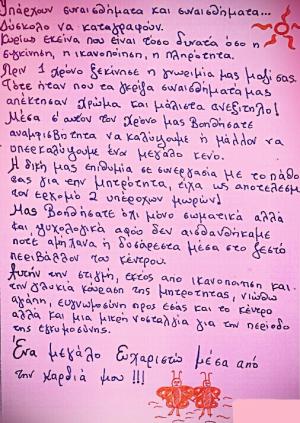 Υπάρχουν συναισθήματα και συναισθήματα...
Δύσκολο να καταγραφούν.
Κυρίως εκείνα που είναι τόσο δυνατά όσο η
συγκίνηση, η ικανοποίηση, η πληρότητα.
Πριν 1 χρόνο ξεκίνησε η γνωριμία μας μαζί σας.
Τότε ήταν που τα γκρίζα συναισθήματά μας
απέκτησαν χρώμα και μάλιστα ανεξίτηλο!
Μέσα σ' αυτόν τον χρόνο μας βοηθήσατε
αναμφισβήτητα να καλύψουμε ή μάλλον να
υπερκαλύψουμε ένα μεγάλο κενό.
Η δική μας επιθυμία σε συνεργασία με το πάθος
σας για την μητρότητα, είχα ως αποτέλεσμα
τον ερχομό 2 υπέροχων μωρών!
Μας βοηθήσατε όχι μόνο σωματικά αλλά
και ψυχολογικά αφού δεν αισθανθήκαμε
ποτέ αμήχανα ή δυσάρεστα μέσα στο ζεστό
περιβάλλον του κέντρου.
Αυτήν την στιγμή, εκτός από ικανοποίηση και
την γλυκιά κούραση της μητρότητας, νιώθω
αγάπη, ευγνωμοσύνη προς εσάς και το κέντρο
αλλά και μια μικρή νοσταλγία για την περίοδο
της εγκυμοσύνης.
Ένα μεγάλο Ευχαριστώ μέσα από
την καρδιά μου!!!